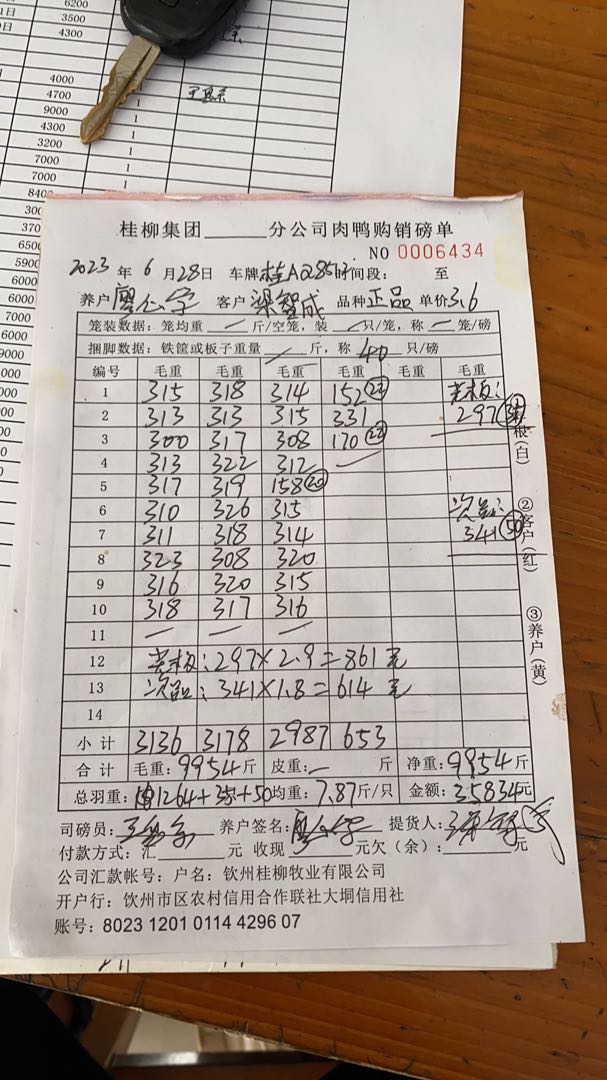 6200
3500
4300
4000
4700 1
9000 1
4300 1
3200 1
7000 1
7000 1
桂柳集团______分公司肉鸭购销磅单
NO 0006434
2023 年 6 月 28 日 车牌 桂A 时间段: 至
养户 客户 梁智成 品种 正品 单价 3.6
笼装数据: 笼均重 — 斤/空笼, 装 — 只/笼, 称 — 笼/磅
捆脚数据: 铁筐或板子重量 — 斤, 称 40 只/磅
编号 毛重 毛重 毛重 毛重 毛重 毛重
1 315 318 314 152 老板:
2 313 313 315 331 297
3 300 317 308 170
4 313 322 312 —
5 317 319 158 20
6 310 326 315 次品:
7 311 318 314 341 50
8 323 308 320
9 316 320 315
10 318 317 316
11 — — —
12 老板: 297×2.9=861元
13 次品: 341×1.8=614元
14
小计 3136 3178 2987 653
合计 毛重: 9954 斤 皮重: — 斤 净重: 9954 斤
总羽重: 1264+35+50 均重: 7.87 斤/只 金额: 35834 元
司磅员: 养户签名: 提货人:
付款方式: 汇______元 收现______元欠(余):______元
公司汇款帐号: 户名: 钦州桂柳牧业有限公司
开户行: 钦州市区农村信用合作联社大垌信用社
账号: 8023 1201 0114 4296 07
①存根(白)
②客户(红)
③养户(黄)